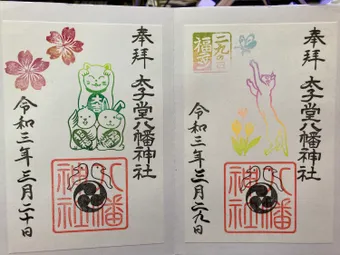 奉拝
太子堂八幡神社
令和三年三月二十日
八幡
神社
奉拝
太子堂八幡神社
二九の日
福
令和三年三月二九日
八幡
神社